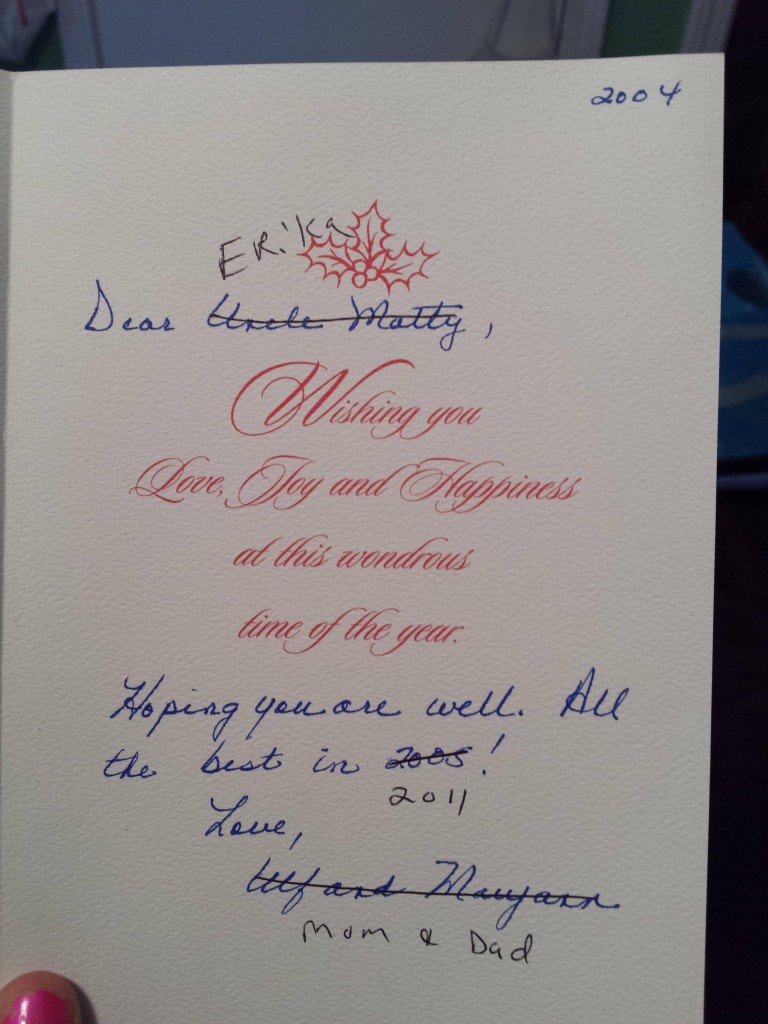 2004
Erika
Dear Uncle Matty,
Wishing you
Love, Joy and Happiness
at this wondrous
time of the year.
Hoping you are well. All
the best in 2005!
2011
Love,
Ulf and Maryann
Mom & Dad